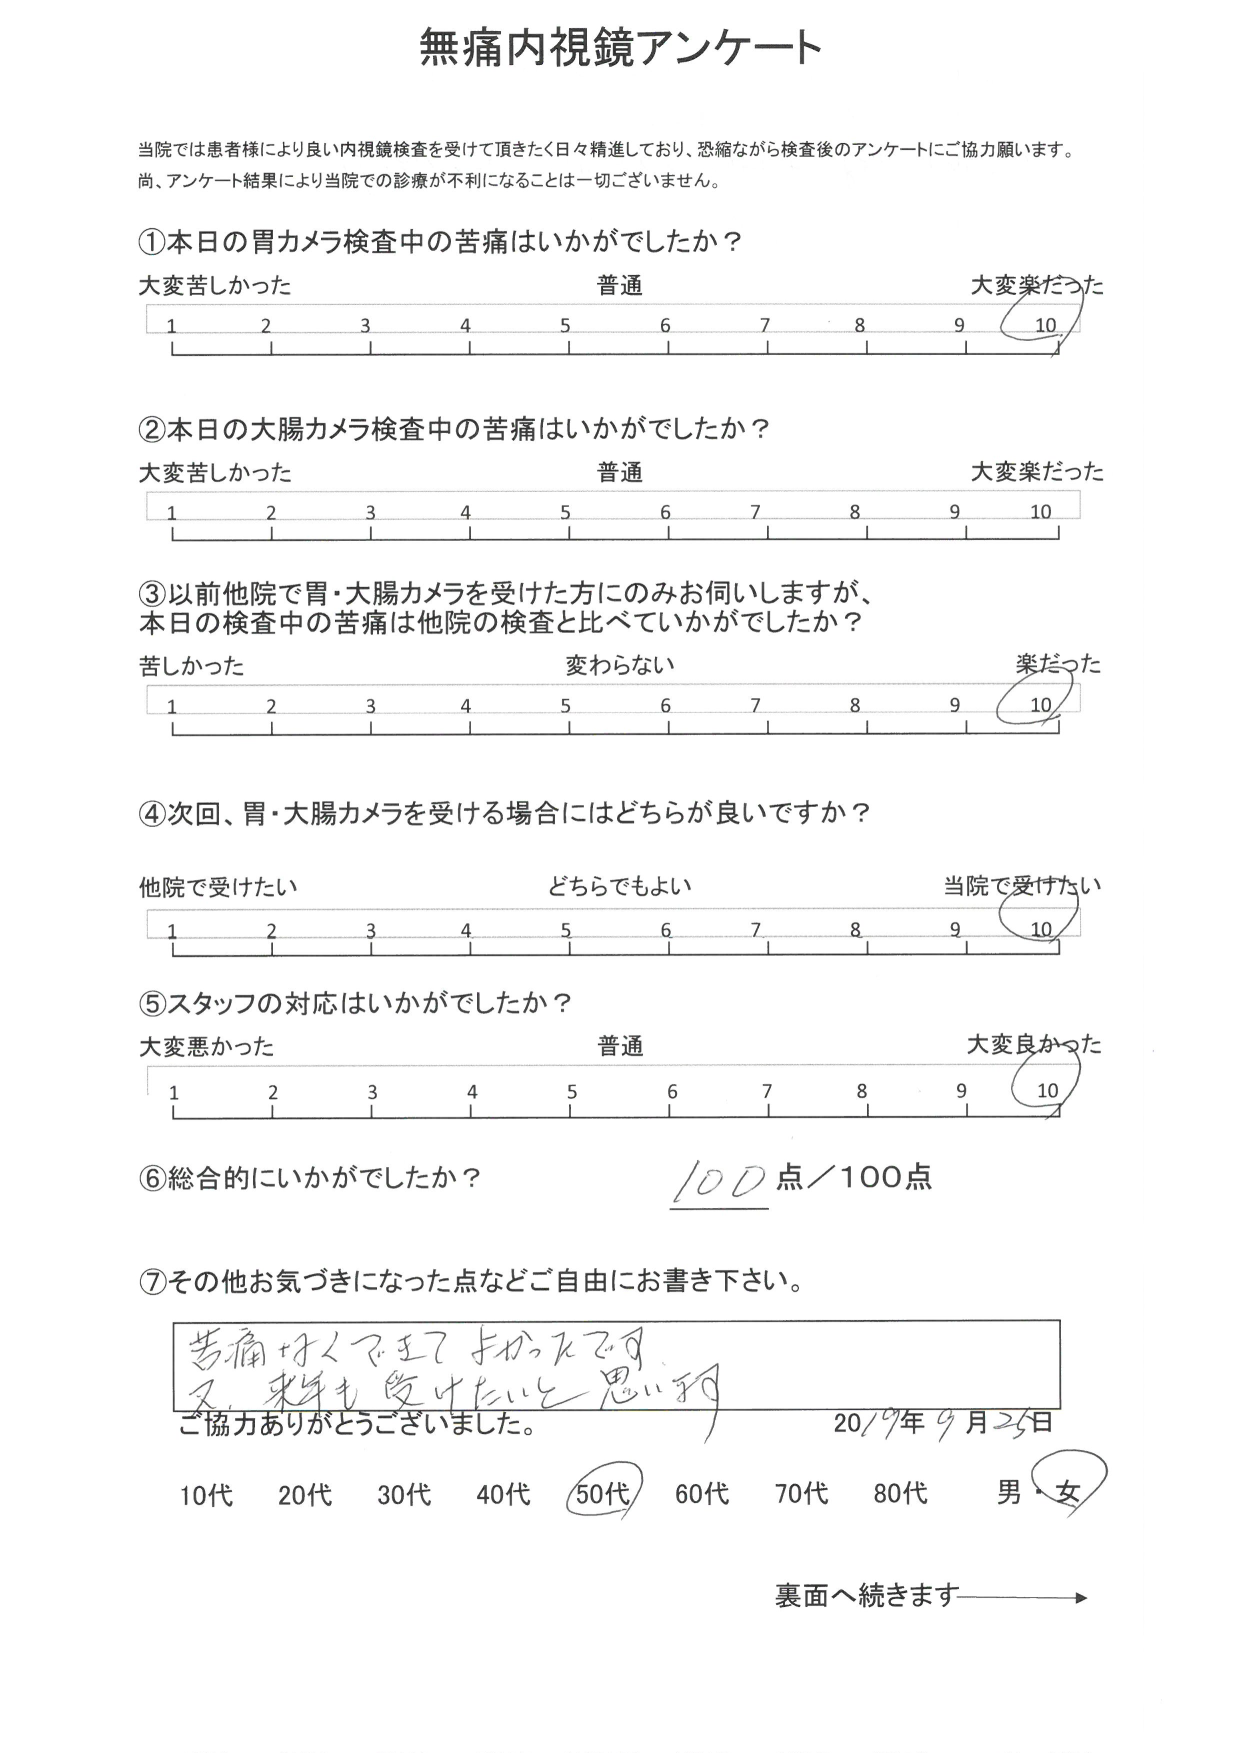 無痛内視鏡アンケート
当院では患者様により良い内視鏡検査を受けて頂きたく日々精進しており、恐縮ながら検査後のアンケートにご協力願います。
尚、アンケート結果により当院での診療が不利になることは一切ございません。
①本日の胃カメラ検査中の苦痛はいかがでしたか？
大変苦しかった 普通 大変楽だった
1 2 3 4 5 6 7 8 9 10
②本日の大腸カメラ検査中の苦痛はいかがでしたか？
大変苦しかった 普通 大変楽だった
1 2 3 4 5 6 7 8 9 10
③以前他院で胃・大腸カメラを受けた方にのみお伺いしますが、
本日の検査中の苦痛は他院の検査と比べていかがでしたか？
苦しかった 変わらない 楽だった
1 2 3 4 5 6 7 8 9 10
④次回、胃・大腸カメラを受ける場合にはどちらが良いですか？
他院で受けたい どちらでもよい 当院で受けたい
1 2 3 4 5 6 7 8 9 10
⑤スタッフの対応はいかがでしたか？
大変悪かった 普通 大変良かった
1 2 3 4 5 6 7 8 9 10
⑥総合的にいかがでしたか？ 100点／100点
⑦その他お気づきになった点などご自由にお書き下さい。
苦痛なくできてよかったです
又、来年も受けたいと思います
ご協力ありがとうございました。 2019年9月25日
10代 20代 30代 40代 50代 60代 70代 80代 男・女
裏面へ続きます